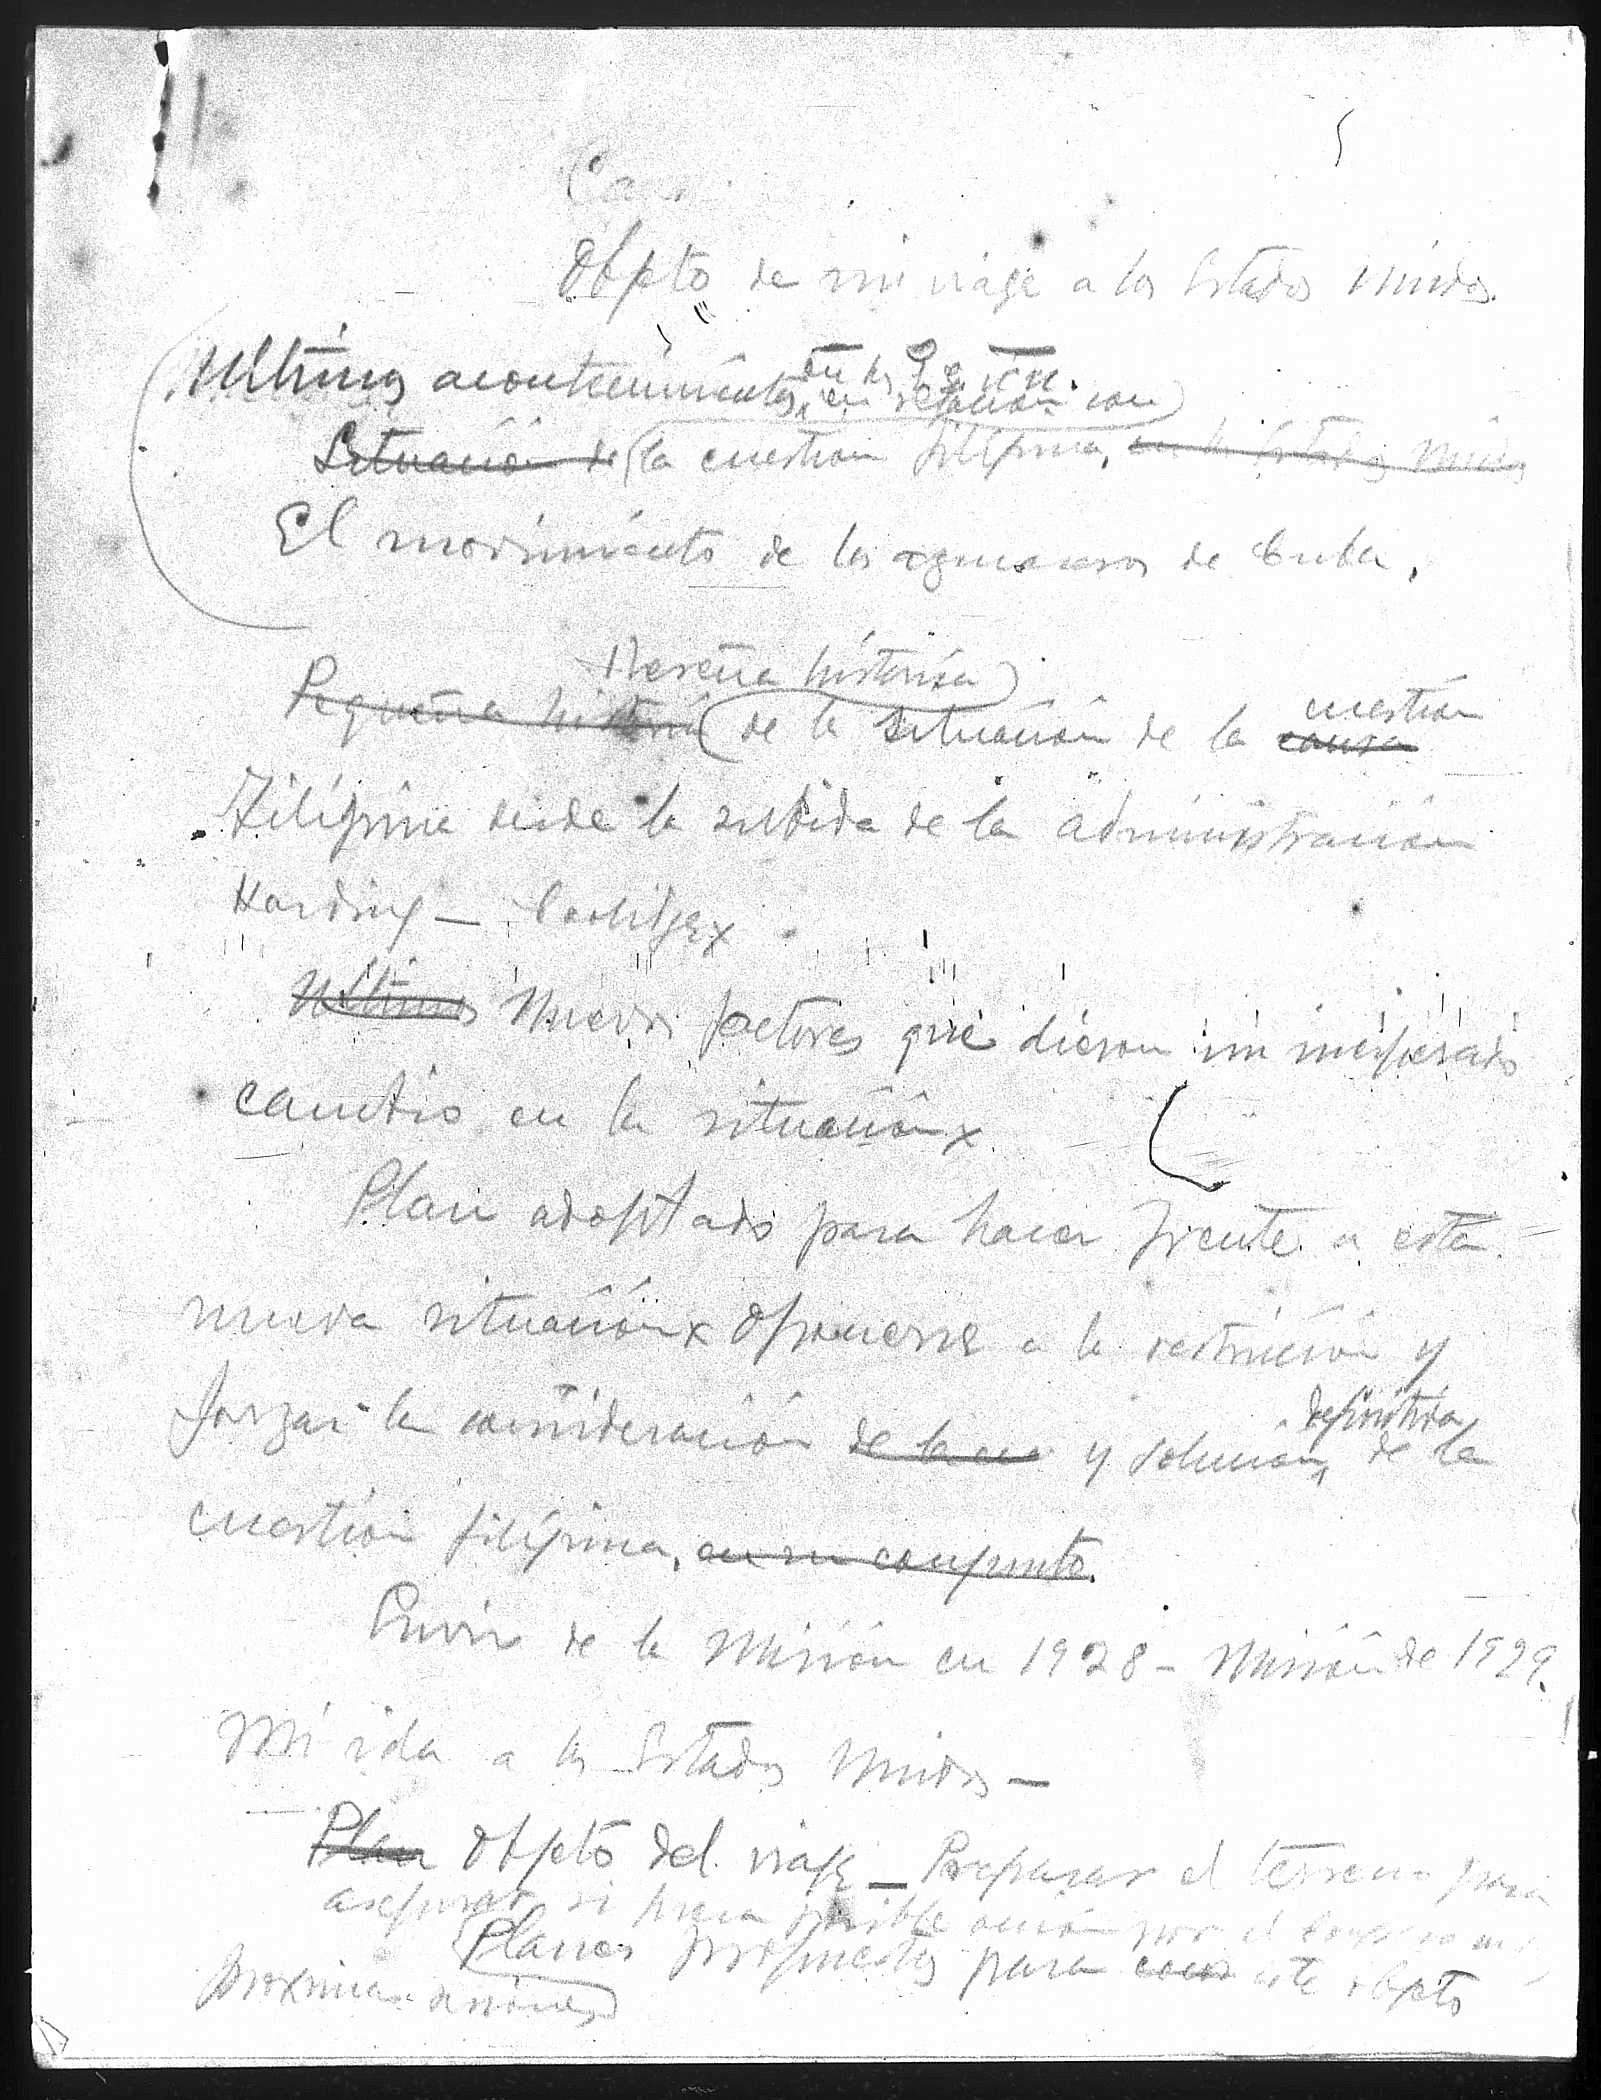 Objeto de mi viaje a los Estados Unidos.
en los E. U.
Ultimos acontecimientos, en relacion con
Situación de la cuestion filipina, en los Estados Unidos
El movimiento de los azucareros de Cuba.
Reseña historica
Pequeña historia de la situación de la causa cuestión
Filipina desde la subida de la administración
Harding — Coolidge x
Ultimos Nuevos factores que dieron un inesperado
cambio en la situación x
Plan adoptado para hacer frente a esta
nueva situación x Oponerse a la restricción y
definitiva
forzar la consideración de la cue y solucion, de la
cuestión filipina, en su conjunto.
Envio de la Misión en 1928 — Misión de 1929.
Mi ida a los Estados Unidos —
Plan Objeto del viaje — Preparar el terreno para
asegurar si fuera posible acción por el Congreso en
Planes propuestos para este objeto
proximas sesiones